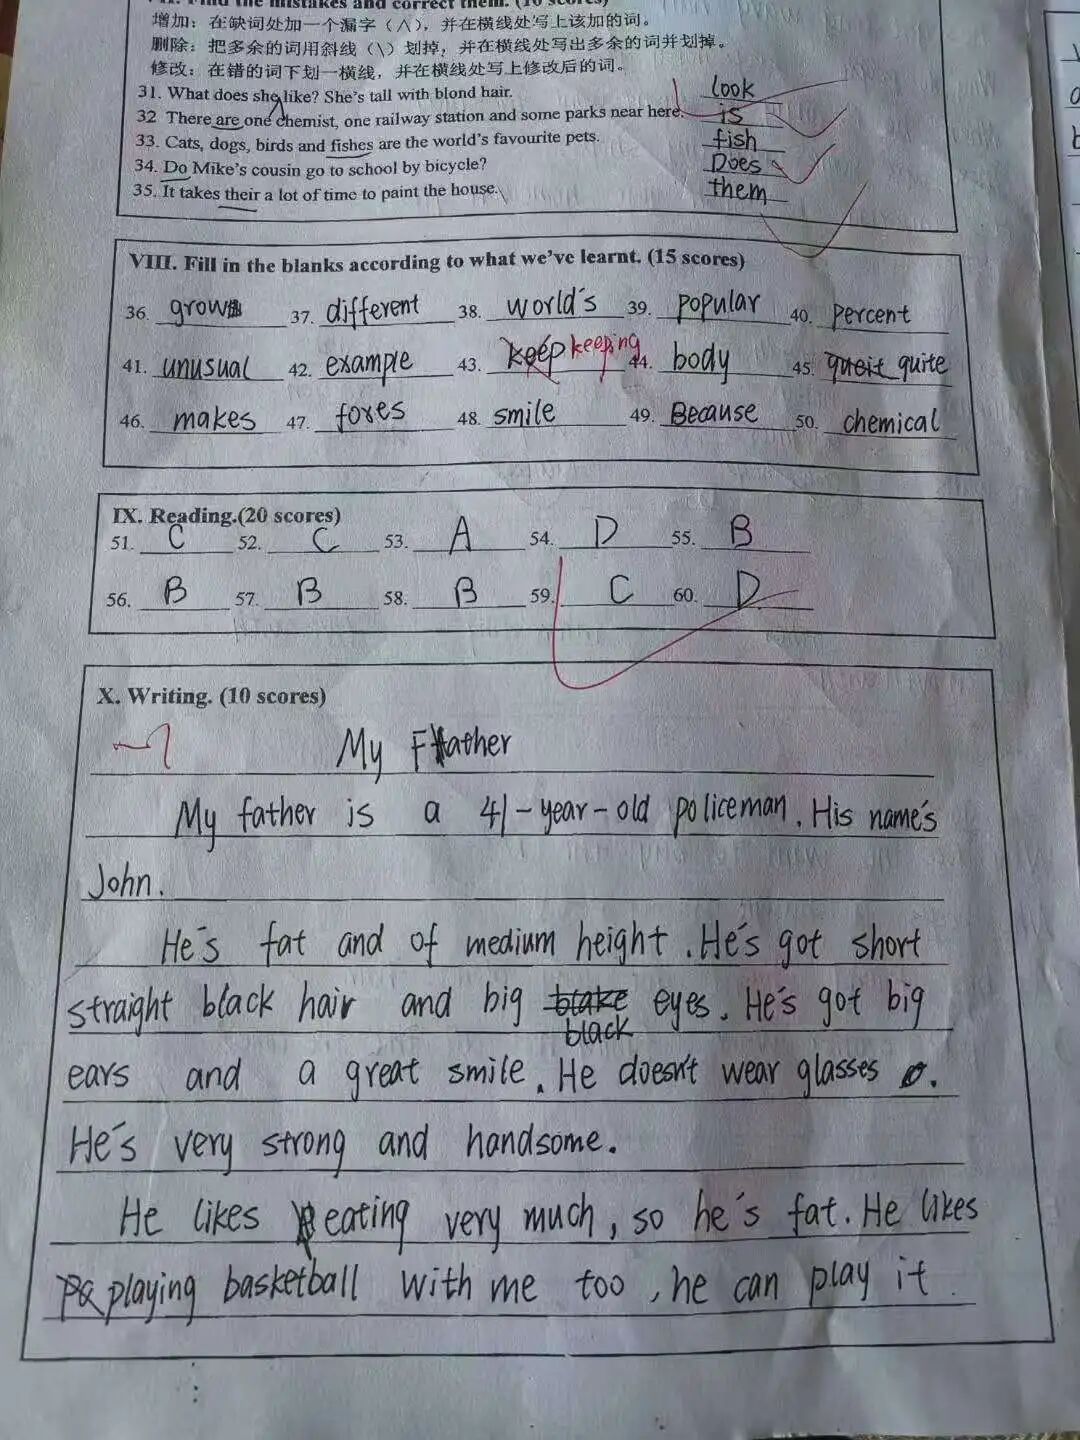 VII. Find the mistakes and correct them. (10 scores)
增加：在缺词处加一个漏字（∧），并在横线处写上该加的词。
删除：把多余的词用斜线（\）划掉，并在横线处写出多余的词并划掉。
修改：在错的词下划一横线，并在横线处写上修改后的词。
31. What does she like? She's tall with blond hair. look
32 There are one chemist, one railway station and some parks near here. is
33. Cats, dogs, birds and fishes are the world's favourite pets. fish
34. Do Mike's cousin go to school by bicycle? Does
35. It takes their a lot of time to paint the house. them
VIII. Fill in the blanks according to what we've learnt. (15 scores)
36. grow 37. different 38. world's 39. popular 40. percent
41. unusual 42. example 43. keep keeping 44. body 45. quite
46. makes 47. foxes 48. smile 49. Because 50. chemical
IX. Reading.(20 scores)
51. C 52. C 53. A 54. D 55. B
56. B 57. B 58. B 59. C 60. D
X. Writing. (10 scores)
-1
My Father
My father is a 41-year-old policeman. His name's
John.
He's fat and of medium height. He's got short
straight black hair and big black eyes. He's got big
ears and a great smile. He doesn't wear glasses.
He's very strong and handsome.
He likes eating very much, so he's fat. He likes
playing basketball with me too, he can play it